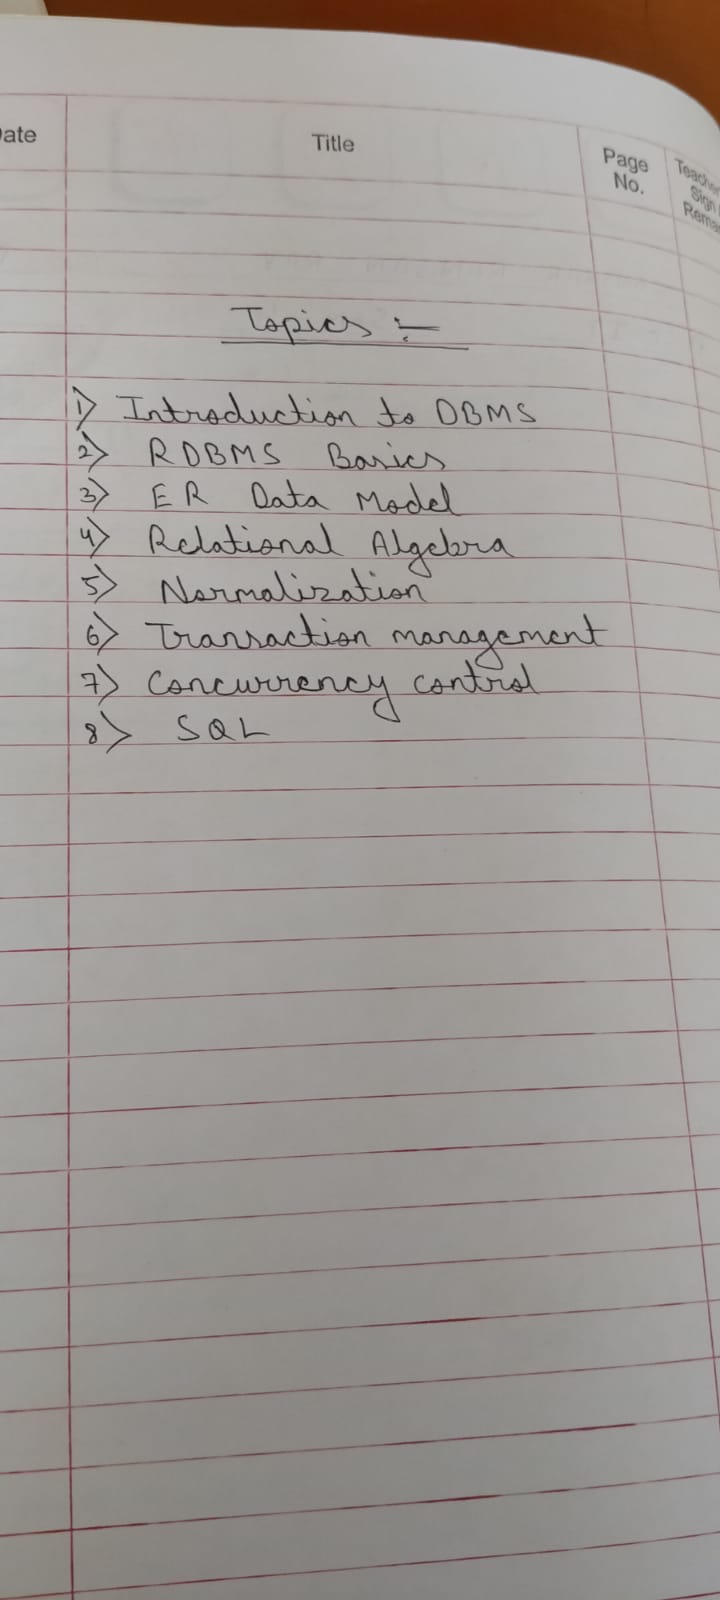 Date Title Page No. Teacher Sign Remarks
Topics :-
1) Introduction to DBMS
2) RDBMS Basics
3) ER Data Model
4) Relational Algebra
5) Normalization
6) Transaction management
7) Concurrency control
8) SQL